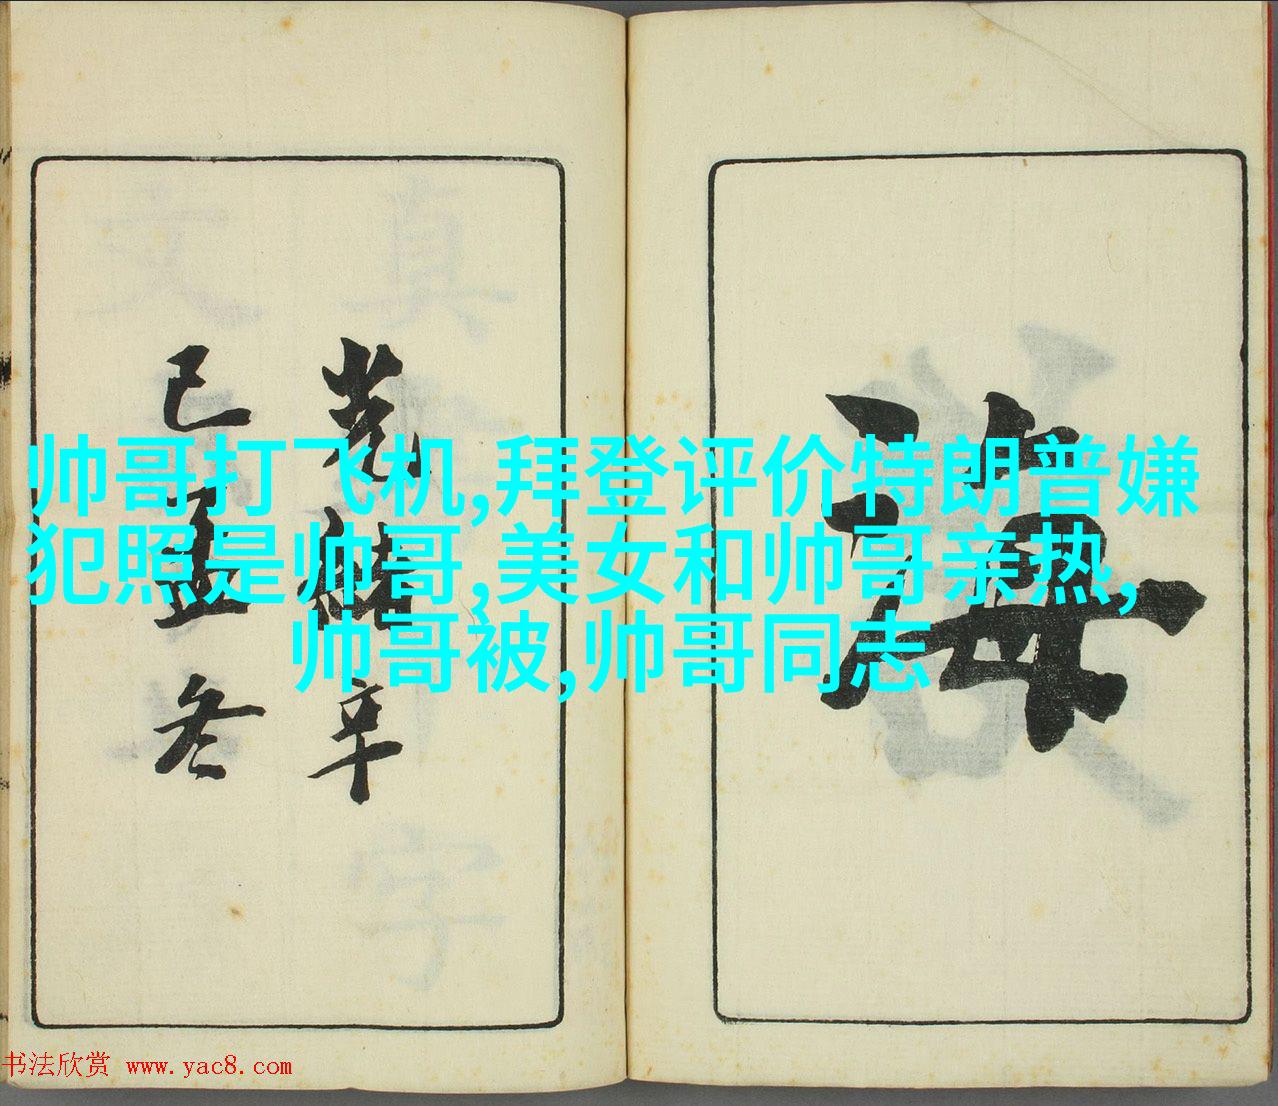 海
光緒辛
已孟冬
帅哥打飞机,拜登评价特朗普嫌
犯照是帅哥,美女和帅哥亲热,
帅哥被,帅哥同志
书法欣赏 www.yac8.com